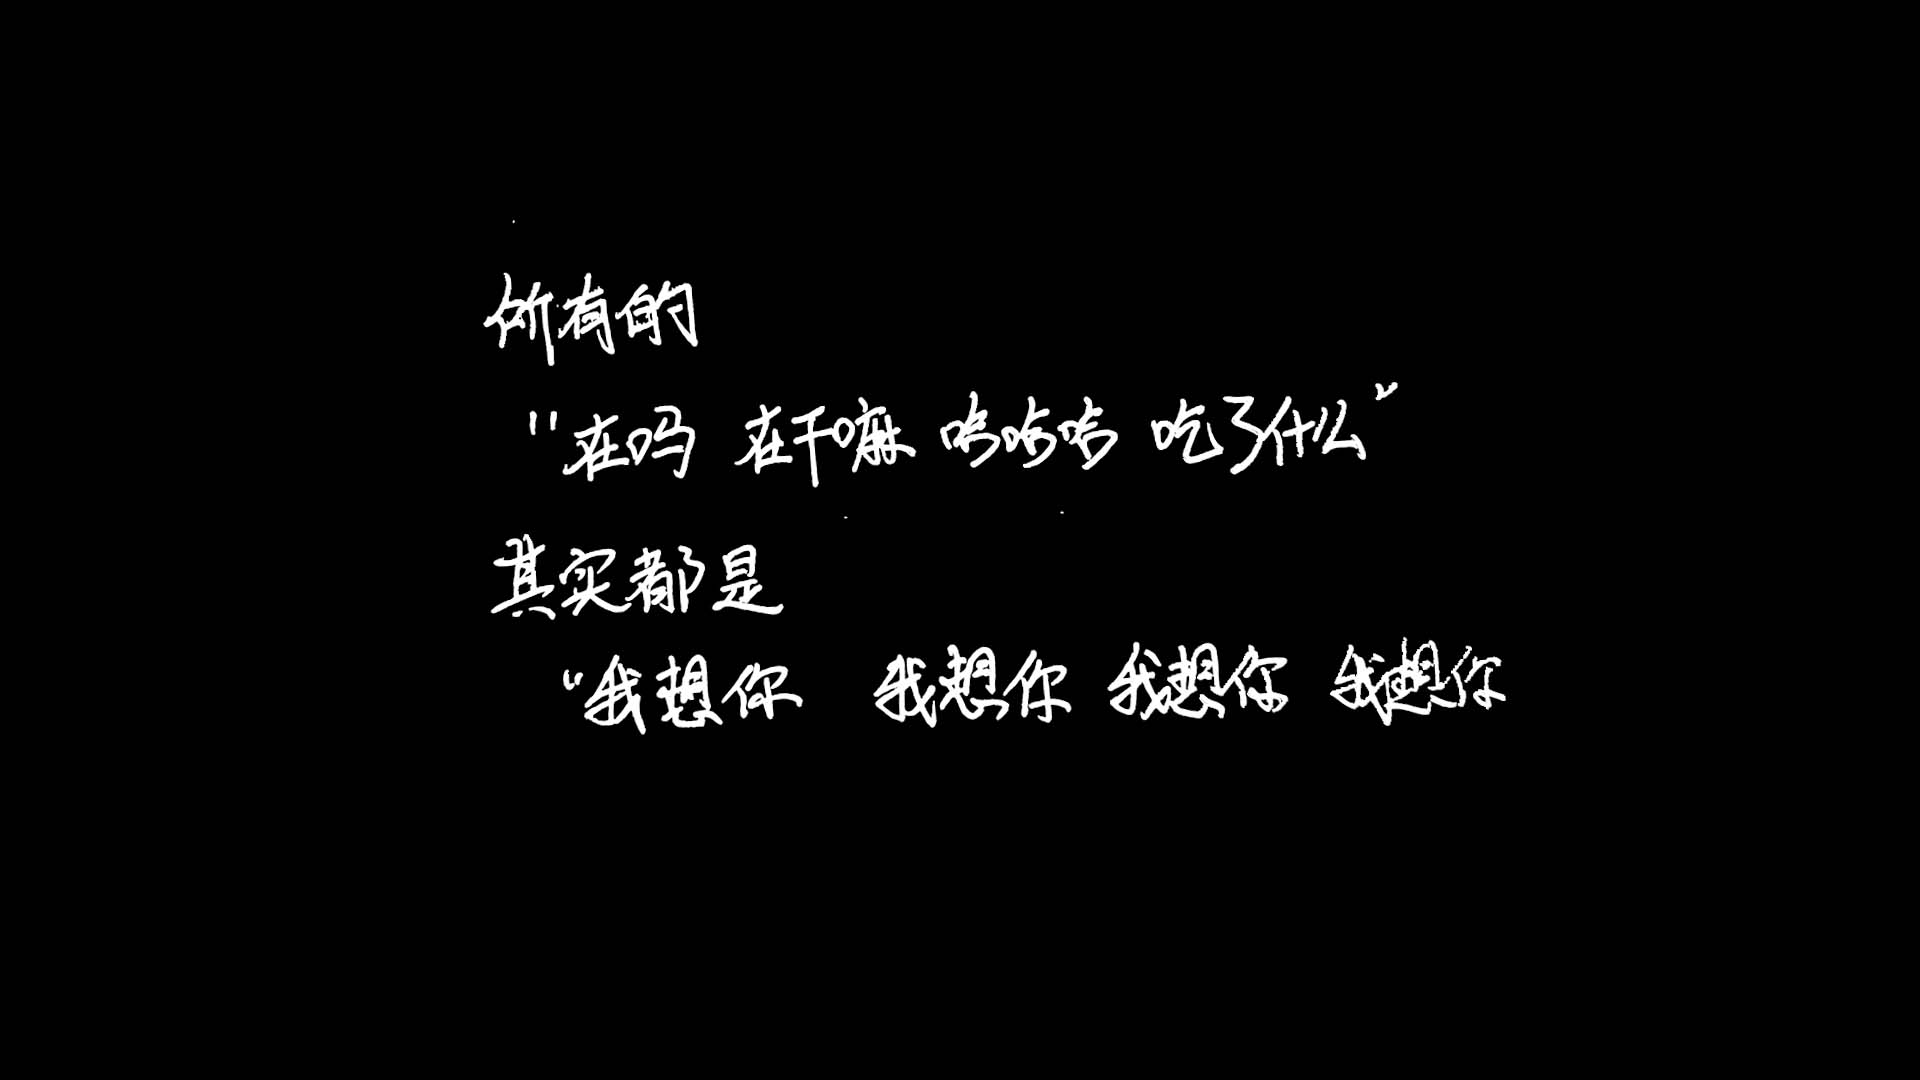 所有的
"在吗 在干嘛 哈哈哈 吃了什么"
其实都是
"我想你 我想你 我想你 我想你